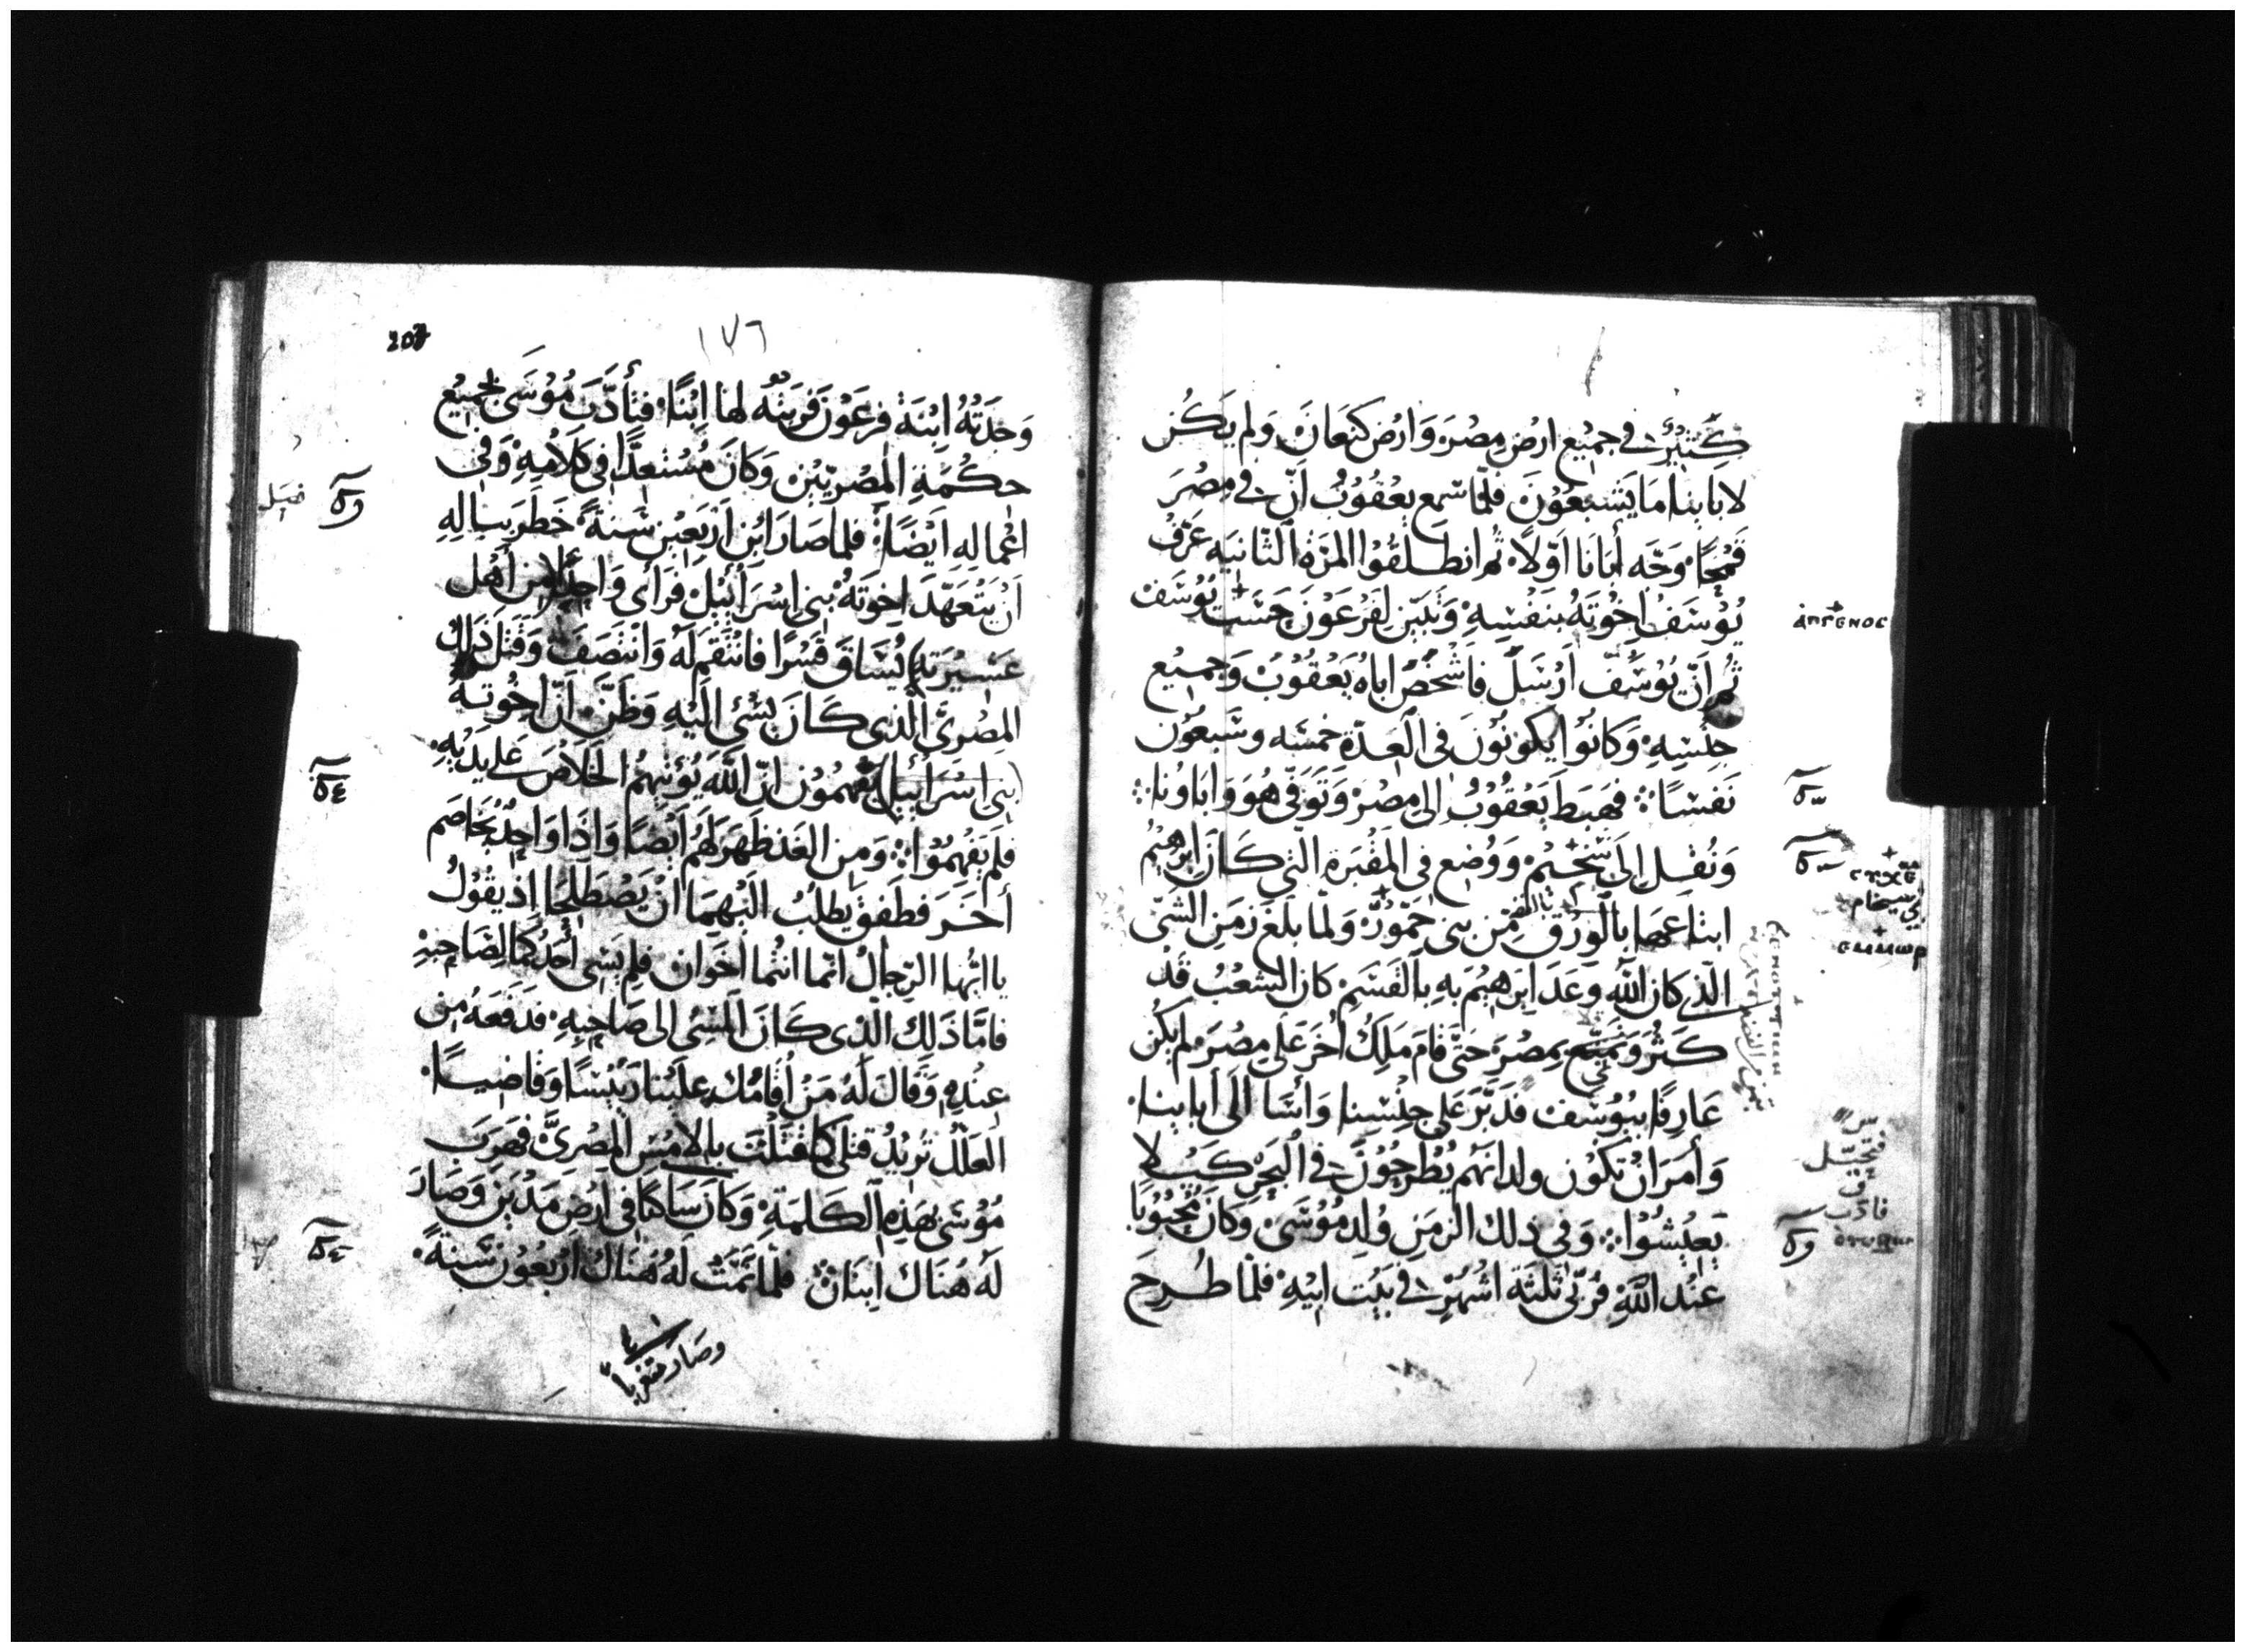 كَثِيرٌ في جميع ارض مِصْرَ وَارْض كنعَانَ وَلم يَكُن
لابَاينا مَا يَشبَعُوْنَ فَلمّا سَمع يعْقُوْبُ اَنّ في مِصْرَ
قَمْحًا وَجّه أبَانَا اَوّلاً ثم انطلقُوا المرّةَ الثّانيَه عَرّفَ
يُوْسَفُ اِخْوتَهُ بنَفْسِهِ وَتبَيّن لِفِرْعَوْنَ جنسَ يُوْسَف
ثُم اَنّ يُوْسَف اَرْسَلَ فَاَشْخَصَ اباهُ يَعْقُوْبَ وَجميْع
جِنْسِهِ وَكانُوا يَكونُوْنَ في العِدّة خمسَه وسَبْعُوْن
نَفسًا فهَبَطَ يَعْقُوْبُ اِلى مِصْرَ وَتوَفّي هُوَ وَابَاونا
وَنُقِل اِلى سَخِيْم وَوُضع في المَقْبَرةِ الّتي كَانَ اِبرهِيْم
ابتاعها بِالوَرق مِن بَني حَمّوْر وَلمّا بلَغ زمَن الشّى
الّذي كان اللّه وَعَدَ اِبرَهيْم بهِ بِالقَسَمِ كان الشعْبُ قَدْ
كَثُرَ وَنَمَى بمِصْرَ حَتّى قامَ مَلِكٌ اُخَر عَلى مِصْرَ لم يكُن
عَارِفًا بيُوسُف فَدَبّرَ عَلى جِنْسِنا وَاَسَا اِلى اَبَاينا
وَأمَرَ اَنْ تكُوْن ولدانهُم يُطْرحُوْنَ في البَحرِ كَيْلا
يَعِيْشُوْا وَفي ذلك الزمَن وُلِد مُوْسَى وَكانَ محْبُوْبًا
عنْد اللّهِ فرُبّيَ ثلثَة اشْهُرٍ في بَيْت ابيْهِ فلمّا طُرِحَ
ⲥⲩⲭⲉⲙ
ⲉⲙⲙⲱⲣ
207
١٧٦
وَجدَتهُ اِبْنَة فرعَوْن فَربتْهُ لها اِبْنًا فتأدّبَ مُوْسَى بجميْع
حكْمَةِ المصْريّيْن وَكانَ مُسْتعِدًّا في كلامِهِ وَفي
اعْمالِهِ اَيْضًا فلما صَارَ ابْن اَرْبَعِيْن سَنةً خَطَرَ ببالِهِ
اَنْ يَتعَهّدَ اِخوَتهُ بَني اِسْرَائيْل فرَأى وَاحِدًا مِن اَهل
عَشيْرَتهِ يُسَاقَ قَسْرًا فانْتَقم لَهُ وَانتصَف وَقتَل ذَلِكَ
المِصْريّ الّذي كَانَ يُسْئ اِلَيْهِ وَظَنّ اَنّ اِخْوتهُ
(بَني اسْرَائيل) يَفهمُوْن انّ اللّهَ يُؤتيْهمُ الخلاصَ عَلى يدَيْهِ
فلم يَفْهمُوْا وَمِن الغَد ظهَرَ لهُم اَيْضًا وَاذَا وَاحدٌ يخَاصَم
أخَر فطَفِق يطلبُ اليهمَا اَنْ يَصْطلِحَا اذ يقُوْلُ
يا ايّها الرّجال انّما انتُما اخوَان فلِم يَسئ اَحَدُكمَا لِصَاحِبهِ
فامّا ذَلِكَ الّذي كانَ المسِئ اِلى صَاحِبهِ فدَفَعَهُ مِن
عِنْدِهِ وَقَالَ لَهُ مَنْ أقامكَ عليْنا رَئيْسًا وَقاضيًا
العَلّك تريْدُ قتلي كما قتَلْتَ بالامْسِ المصْريَّ فهَرَبَ
مُوْسَى بهَذِهِ الكَلمَةِ وَكانَ سَاكنًا في ارْضِ مَدْيَن وَصَارَ
لَهُ هُنَاك اِبنَان فلمّا تمّتْ لَهُ هُنَاك اَرْبعُوْن سَنَةً
وصَار